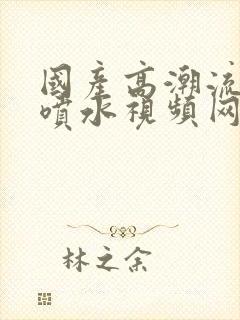 國產高潮流
噴水視頻网
林之余